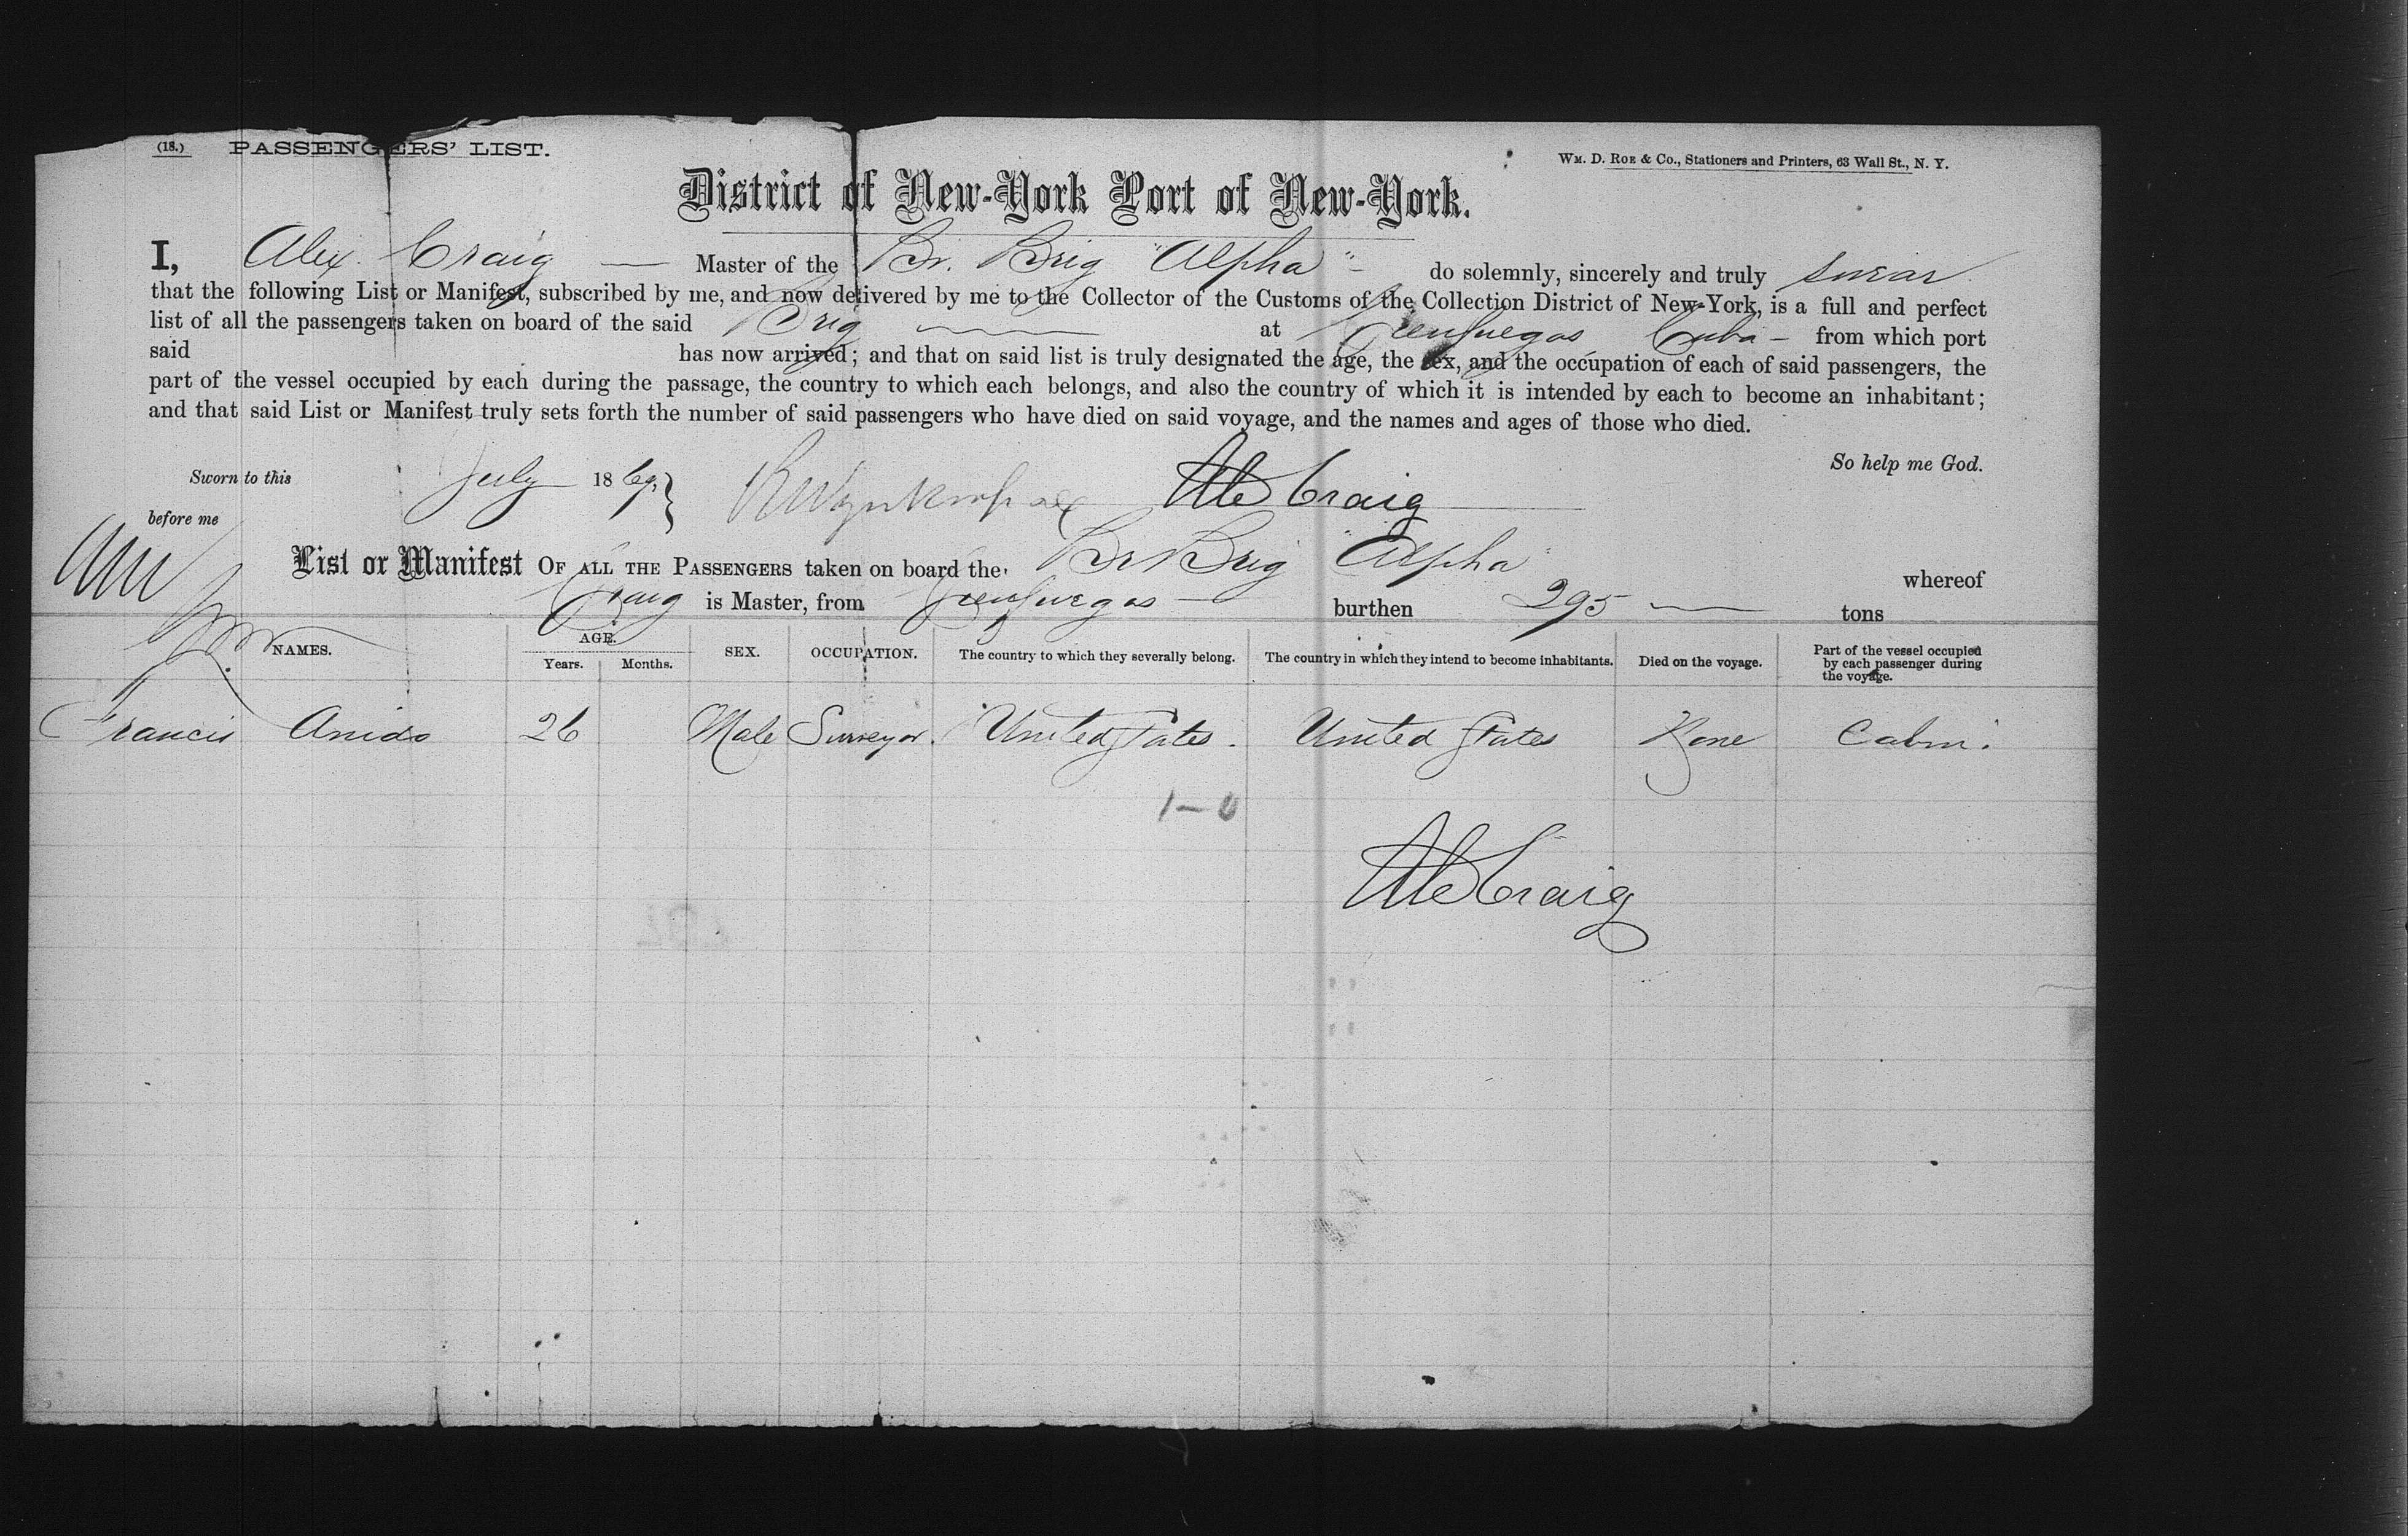 (18.) PASSENGERS' LIST.
WM. D. ROE & Co., Stationers and Printers, 63 Wall St., N. Y.
District of New-York Port of New-York.
I, Alex. Craig — Master of the Br. Brig "Alpha" - do solemnly, sincerely and truly swear
that the following List or Manifest, subscribed by me, and now delivered by me to the Collector of the Customs of the Collection District of New-York, is a full and perfect
list of all the passengers taken on board of the said Brig — at Cienfuegos Cuba - from which port
said has now arrived; and that on said list is truly designated the age, the sex, and the occupation of each of said passengers, the
part of the vessel occupied by each during the passage, the country to which each belongs, and also the country of which it is intended by each to become an inhabitant;
and that said List or Manifest truly sets forth the number of said passengers who have died on said voyage, and the names and ages of those who died.
So help me God.
Sworn to this July 1869, } Alex Craig
before me
List or Manifest OF ALL THE PASSENGERS taken on board the Br Brig "Alpha" whereof
Craig is Master, from Cienfuegos — burthen 295 — tons
NAMES. AGE. Years. Months. SEX. OCCUPATION. The country to which they severally belong. The country in which they intend to become inhabitants. Died on the voyage. Part of the vessel occupied by each passenger during the voyage.
Francis Anido 26 Male Surveyor. United States. United States None Cabin.
1 — 0
Alex Craig